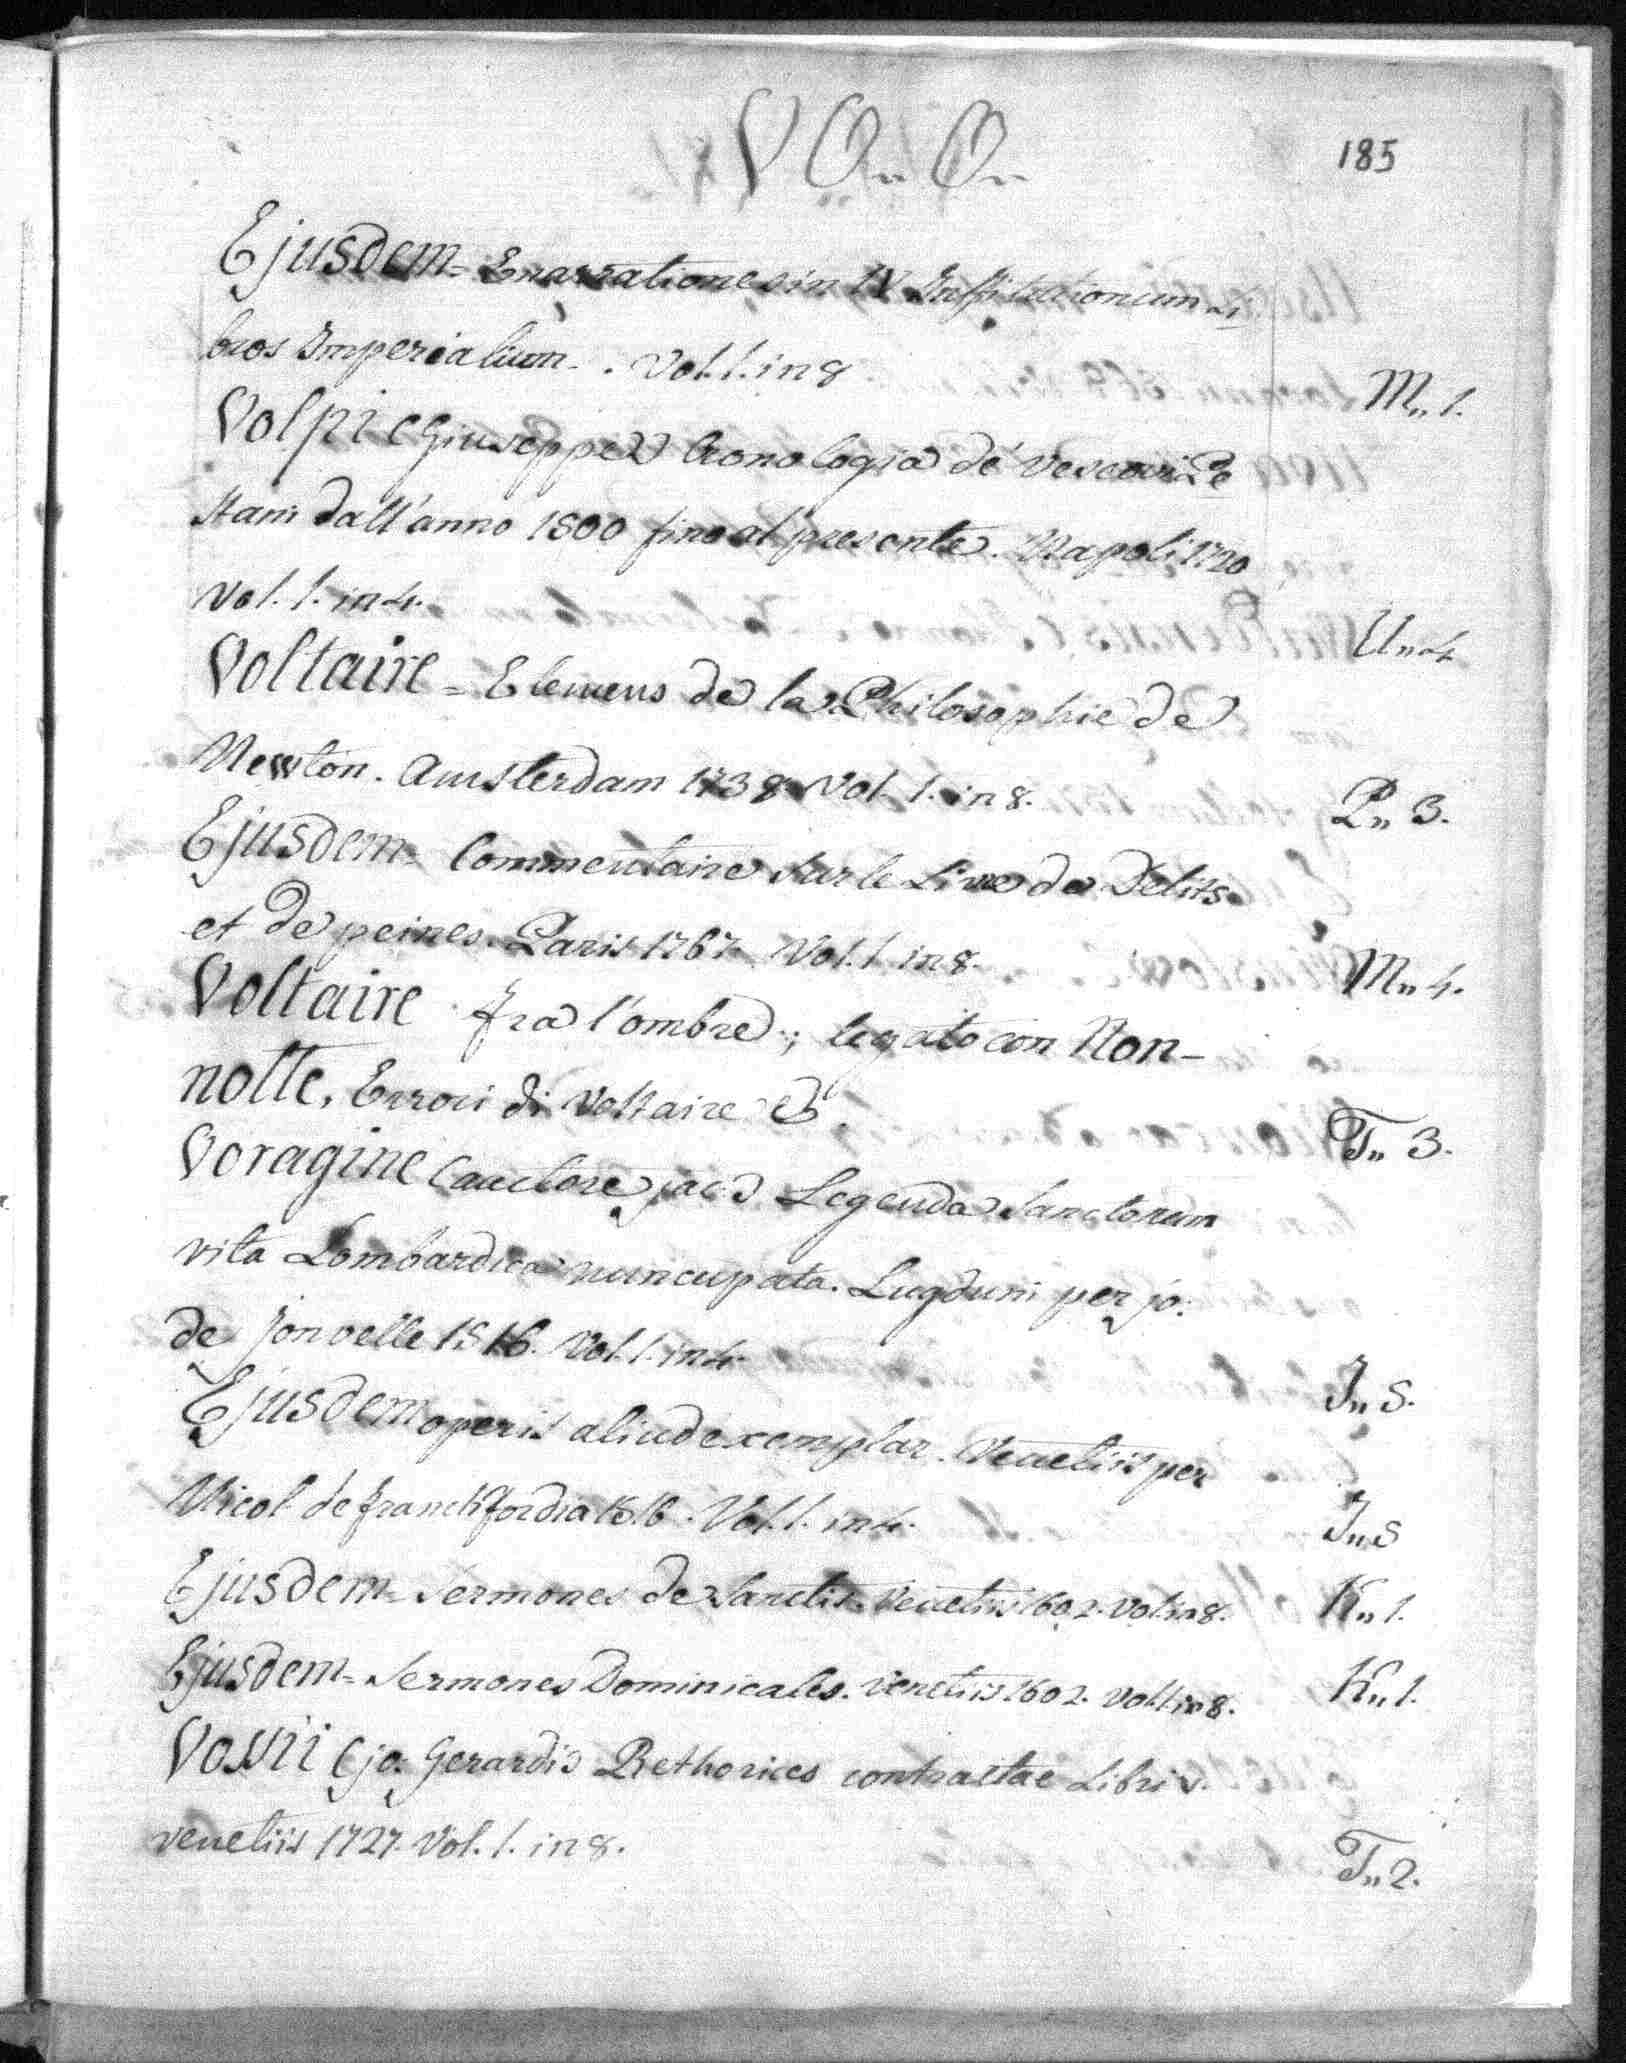 VO,, O,,
185
Ejusdem = Enarrationes in IV Institutionum Li
bros Imperialium. . Vol. 1. in 8
M,, 1.
Volpi (Giuseppe) Cronologia de' Vescovi Pe
stani dall'anno 1500 fino al presente. Napoli 1720
Vol. 1. in 4.
U,, 4
Voltaire = Elemens de la Philosophie de
Newton. Amsterdam 1738 Vol. 1. in 8.
P,, 3.
Ejusdem = Commentaire sur le Livre de Delits
et de peines. Paris 1767. Vol. 1 in 8.
M,, 4.
Voltaire fra l'ombre ; legato con Non-
notte, Errori di Voltaire &.
T,, 3.
Voragine (auctore jac:) Legenda Sanctorum
vita Lombardica nuncupata. Lugduni per jo:
de Jonvelle 1516. Vol. 1. in 4.
J,, 5.
Ejusdem operis aliud exemplar. Venetiis per
Nicol de Franckfordia 1516. Vol. 1. in 4.
J,, 5
Ejusdem = Sermones de Sanctis. Venetiis 1602. Vol. in 8.
K,, 1.
Ejusdem = Sermones Dominicales. Venetiis 1602. Vol. 1. in 8.
K,, 1.
Vossii (jo: Gerardi) Rethorices contractae Libri v.
Venetiis 1727. Vol. 1. in 8.
T,, 2.